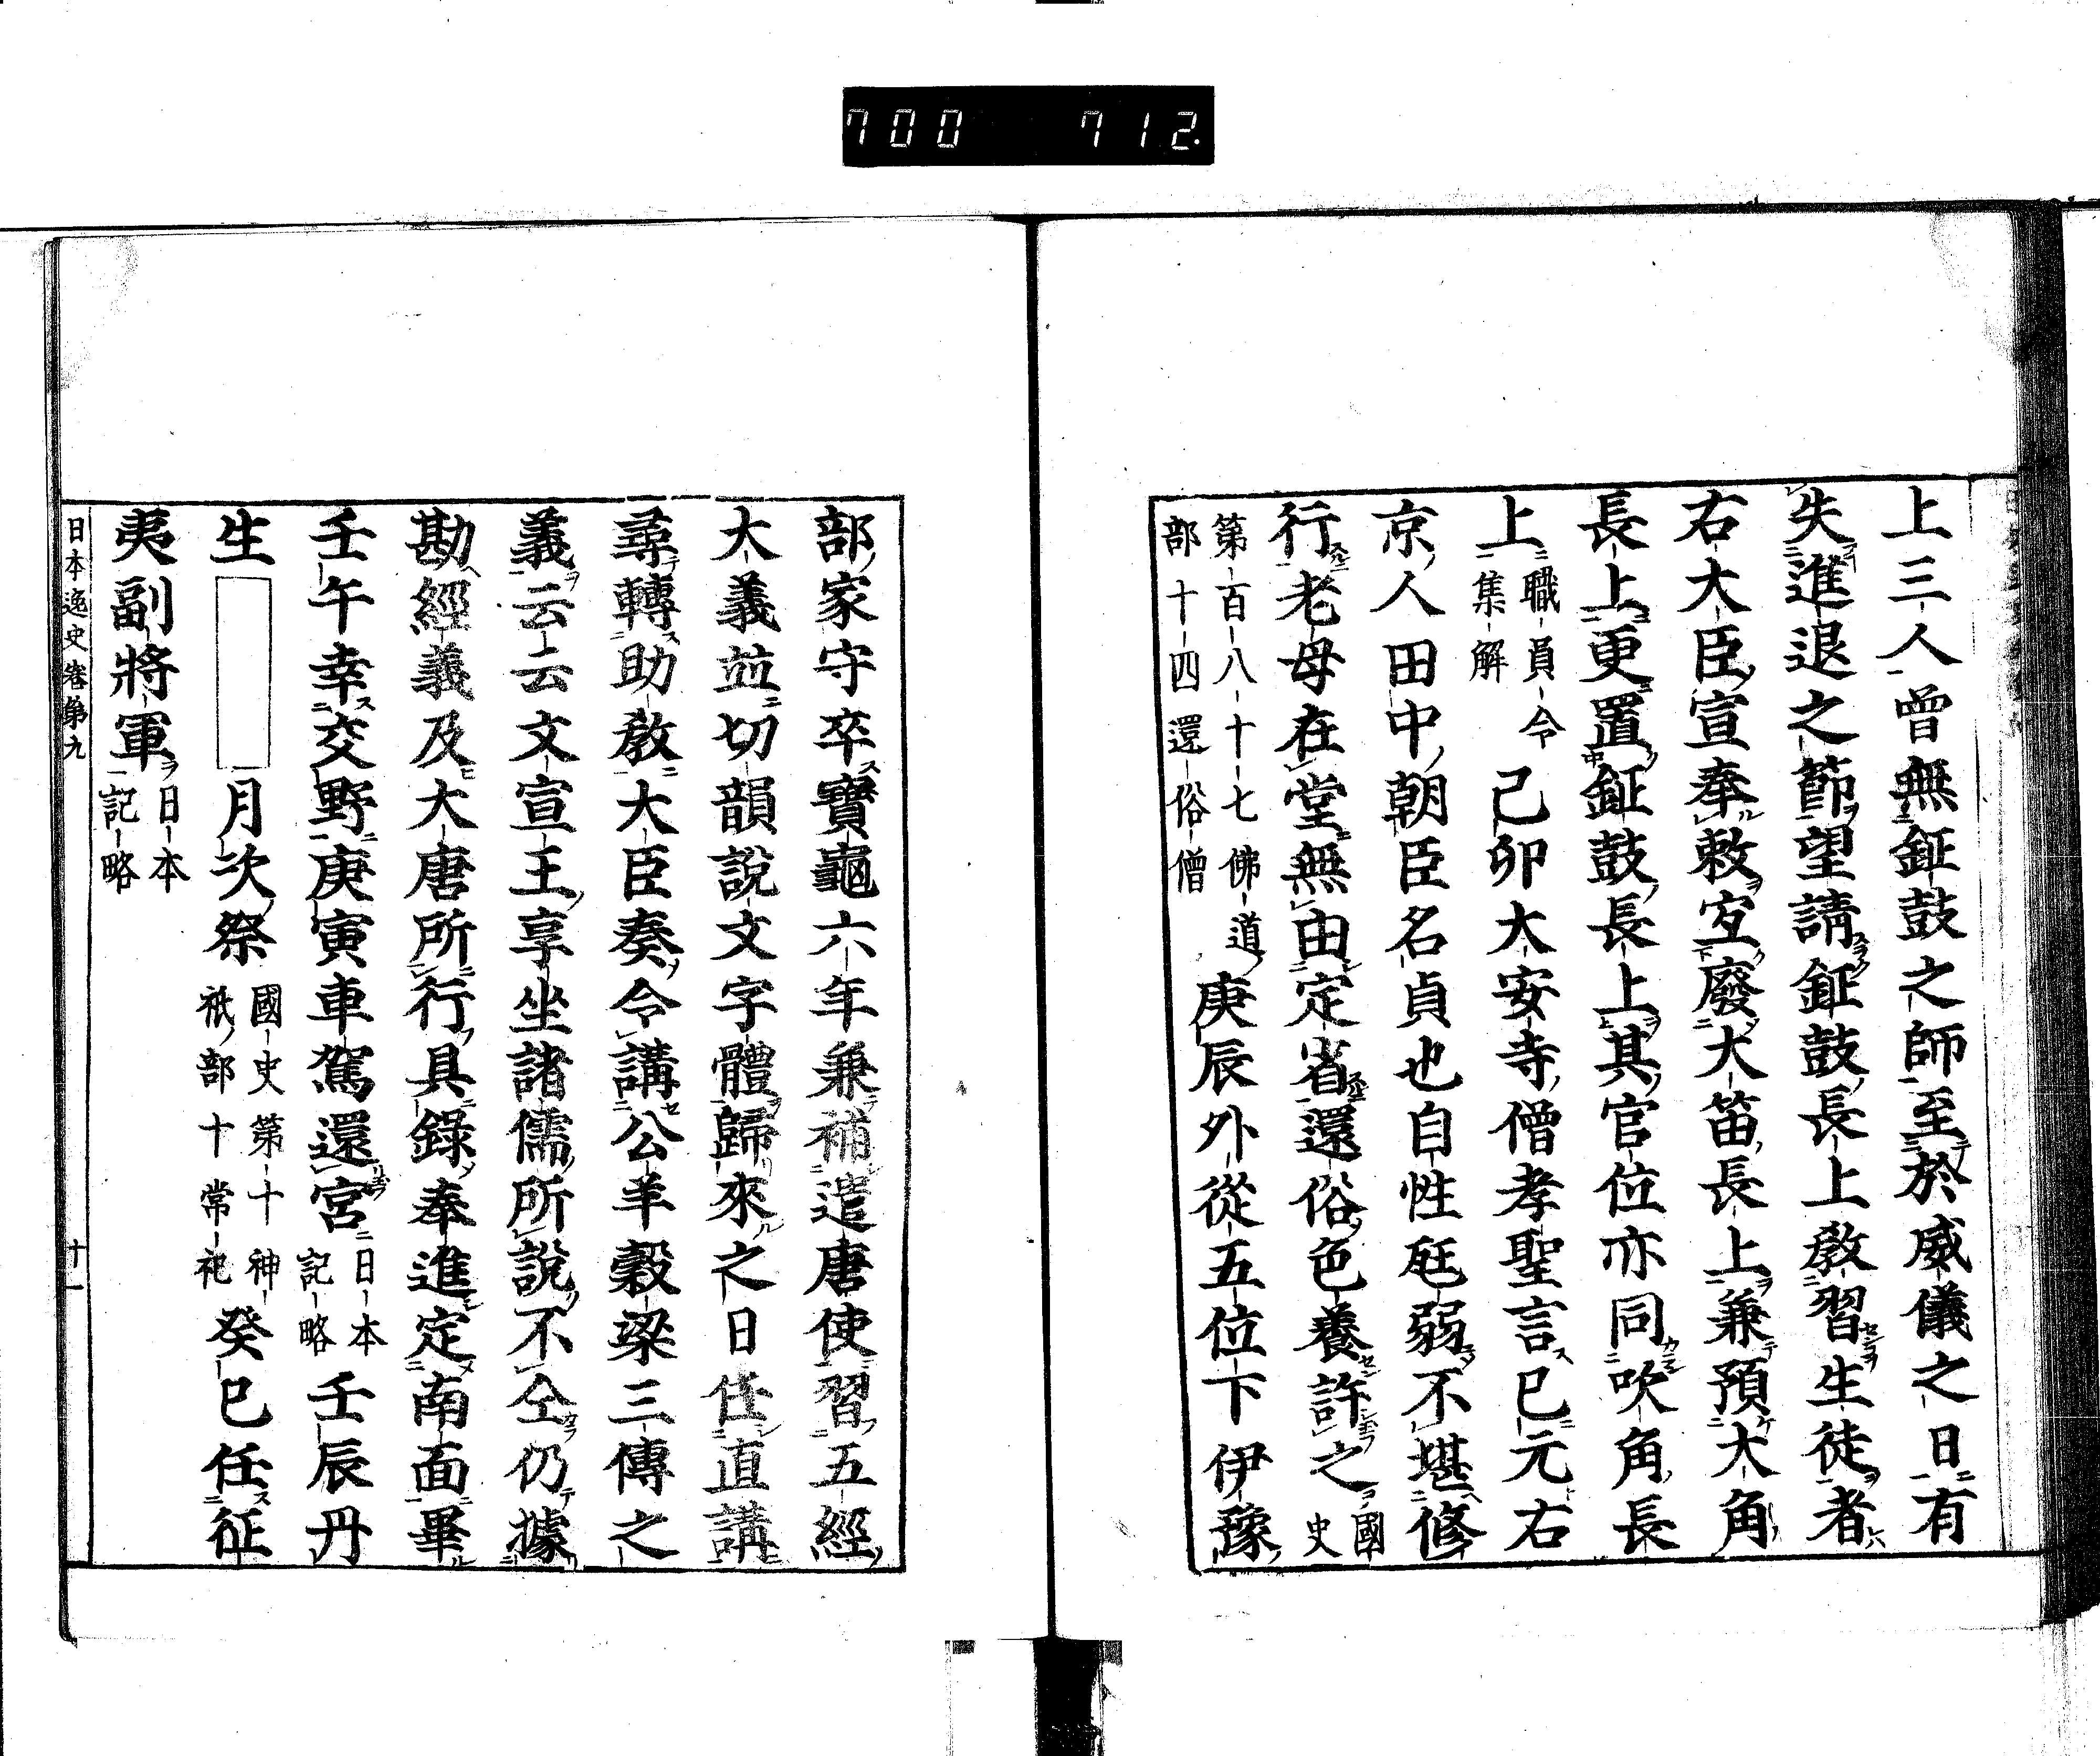 700 712.
上三人曾無鉦鼓之師至於威儀之日有
失進退之節望請鉦鼓長上教習生徒者
右大臣宣奉敕宜廢大笛長上兼預大角
長上更置鉦鼓長上其官位亦同吹角長
上職員令集解己卯大安寺僧孝聖言已元右
京人田中朝臣名貞也自性尫弱不堪修
行老母在堂無由定省還俗色養許之國史
第百八十七佛道部十四還俗僧庚辰外從五位下伊豫
部家守卒寶龜六年兼補遣唐使習五經
大義並切韻說文字體歸來之日任直講
尋轉助教大臣奏令講公羊穀梁三傳之
義云云文宣王享坐諸儒所說不仝仍據
勘經義及大唐所行具錄奉進定南面畢
壬午幸交野庚寅車駕還宮日本記略壬辰丹
生月次祭國史第十神祇部十常祀癸巳任征
夷副將軍日本記略
日本逸史卷第九 十一